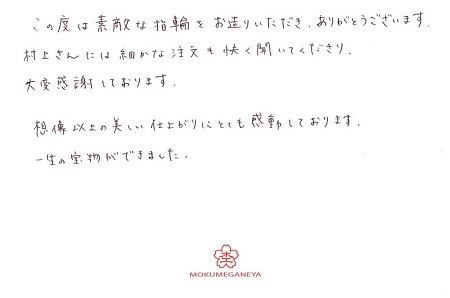 この度は素敵な指輪をお造りいただき、ありがとうございます.
村上さんには細かな注文も快く聞いてくださり、
大変感謝しております.
想像以上の美しい仕上がりにとても感動しております.
一生の宝物ができました.
杢
MOKUMEGANEYA